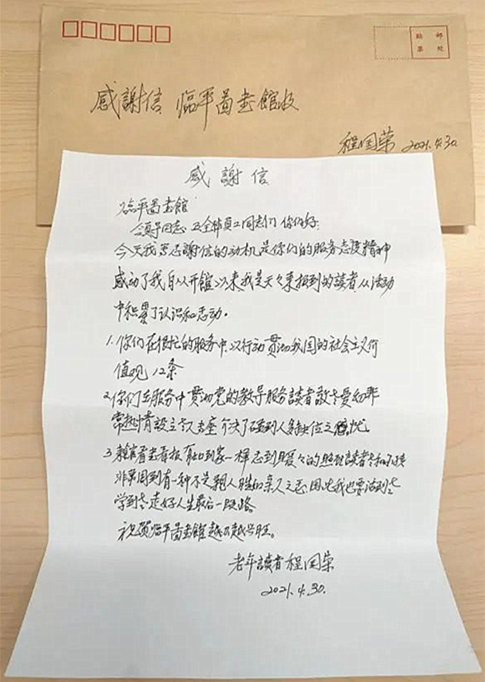 贴 邮
票 处
感謝信 临平圖書館收
程国荣 2021.4.30.
感 謝 信
临平圖書館
领导同志 及全体員工同志们 你们好:
今天我写感謝信的动机是你们的服务态度精神
感动了我 自从开館以来我是天天来报到的讀者 从活动
中积累了认识和感动。
1. 你们在很忙的服务中以行动贯彻我国的社会主义价
值观 12条
2. 你们在服务中贯彻党的教导服务讀者敬老爱幼非
常热情
3. 来館看書看报 有如到家一样感到暖々的
非常周到有一种不是親人胜如亲人之感 因此我也要活到老
学到老 走好人生最后一段路
祝愿临平圖書館越办越兴旺。
老年讀者 程国荣
2021.4.30.